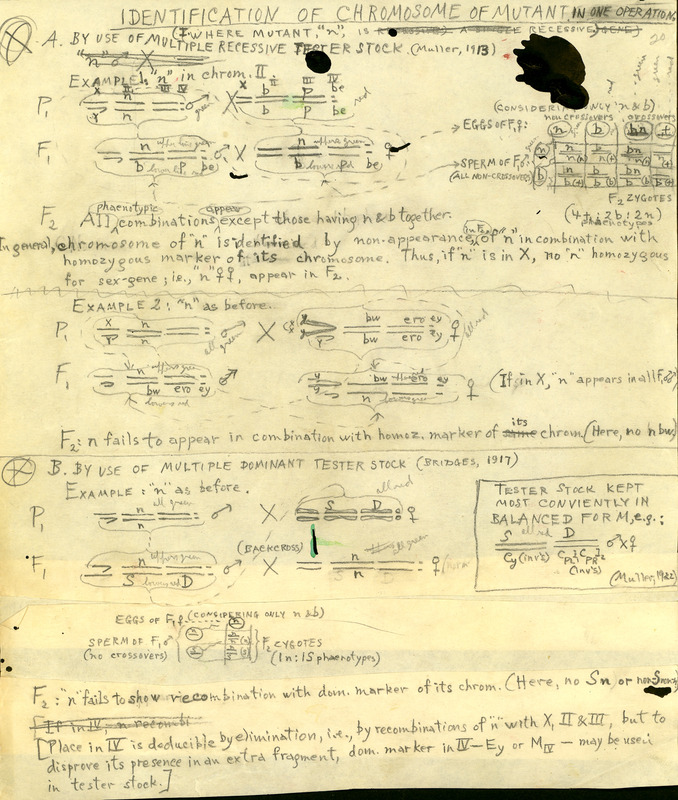 IDENTIFICATION OF CHROMOSOME OF MUTANT IN ONE OPERATION
A. BY USE OF MULTIPLE RECESSIVE TESTER STOCK. (Muller, 1913)
(WHERE MUTANT, "n", IS RECESSIVE)
EXAMPLE 1: "n" in chrom. II
P₁ n ♂ X b p be
green red
F₁ n upper green
b lower red p be ♂ X n upper green
b lower red p be ♀
(CONSIDERING ONLY n & b)
noncrossovers crossovers
EGGS OF F₁♀: n b bn +
SPERM OF F₁♂
(ALL NON-CROSSOVERS)
F₂ ZYGOTES
(4+ : 2b : 2n)
phaenotypes
F₂ All phaenotypic combinations appear except those having n & b together.
In general, chromosome of "n" is identified by non-appearance in F₂ of "n" in combination with
homozygous marker of its chromosome. Thus, if "n" is in X, no "n" homozygous
for sex-gene; i.e., "n" ♀♀, appear in F₂.
EXAMPLE 2: "n" as before.
P₁ X n ♂ X y bw ero ey ♀
Y y bw ero ey
all green all red
F₁ n upper green
bw ero ey ♂
lower red
y bw ero ey
y n ♀
lower green
(If in X, "n" appears in all F₁ ♂♂)
F₂: n fails to appear in combination with homoz. marker of its same chrom. (Here, no n bw)
B. BY USE OF MULTIPLE DOMINANT TESTER STOCK (BRIDGES, 1917)
EXAMPLE: "n" as before.
P₁ n all green
n ♂ X S D all red ♀
F₁ n upper green
S lower red D ♂ (BACKCROSS) X n all green
n ♀
TESTER STOCK KEPT
MOST CONVIENTLY IN
BALANCED FORM, e.g.:
S all red D
Cy (inv's) (inv's) ♂X♀
(Muller, 1922)
EGGS OF F₁♀ (CONSIDERING ONLY n & b)
SPERM OF F₁♂
(no crossovers)
F₂ ZYGOTES
(1n : 1S phaenotypes)
F₂: "n" fails to show recombination with dom. marker of its chrom. (Here, no Sn or non-S non-n)
If in IV, n recombi
[Place in IV is deducible by elimination, i.e., by recombinations of "n" with X, II & III, but to
disprove its presence in an extra fragment, dom. marker in IV — Ey or M IV — may be used
in tester stock.]